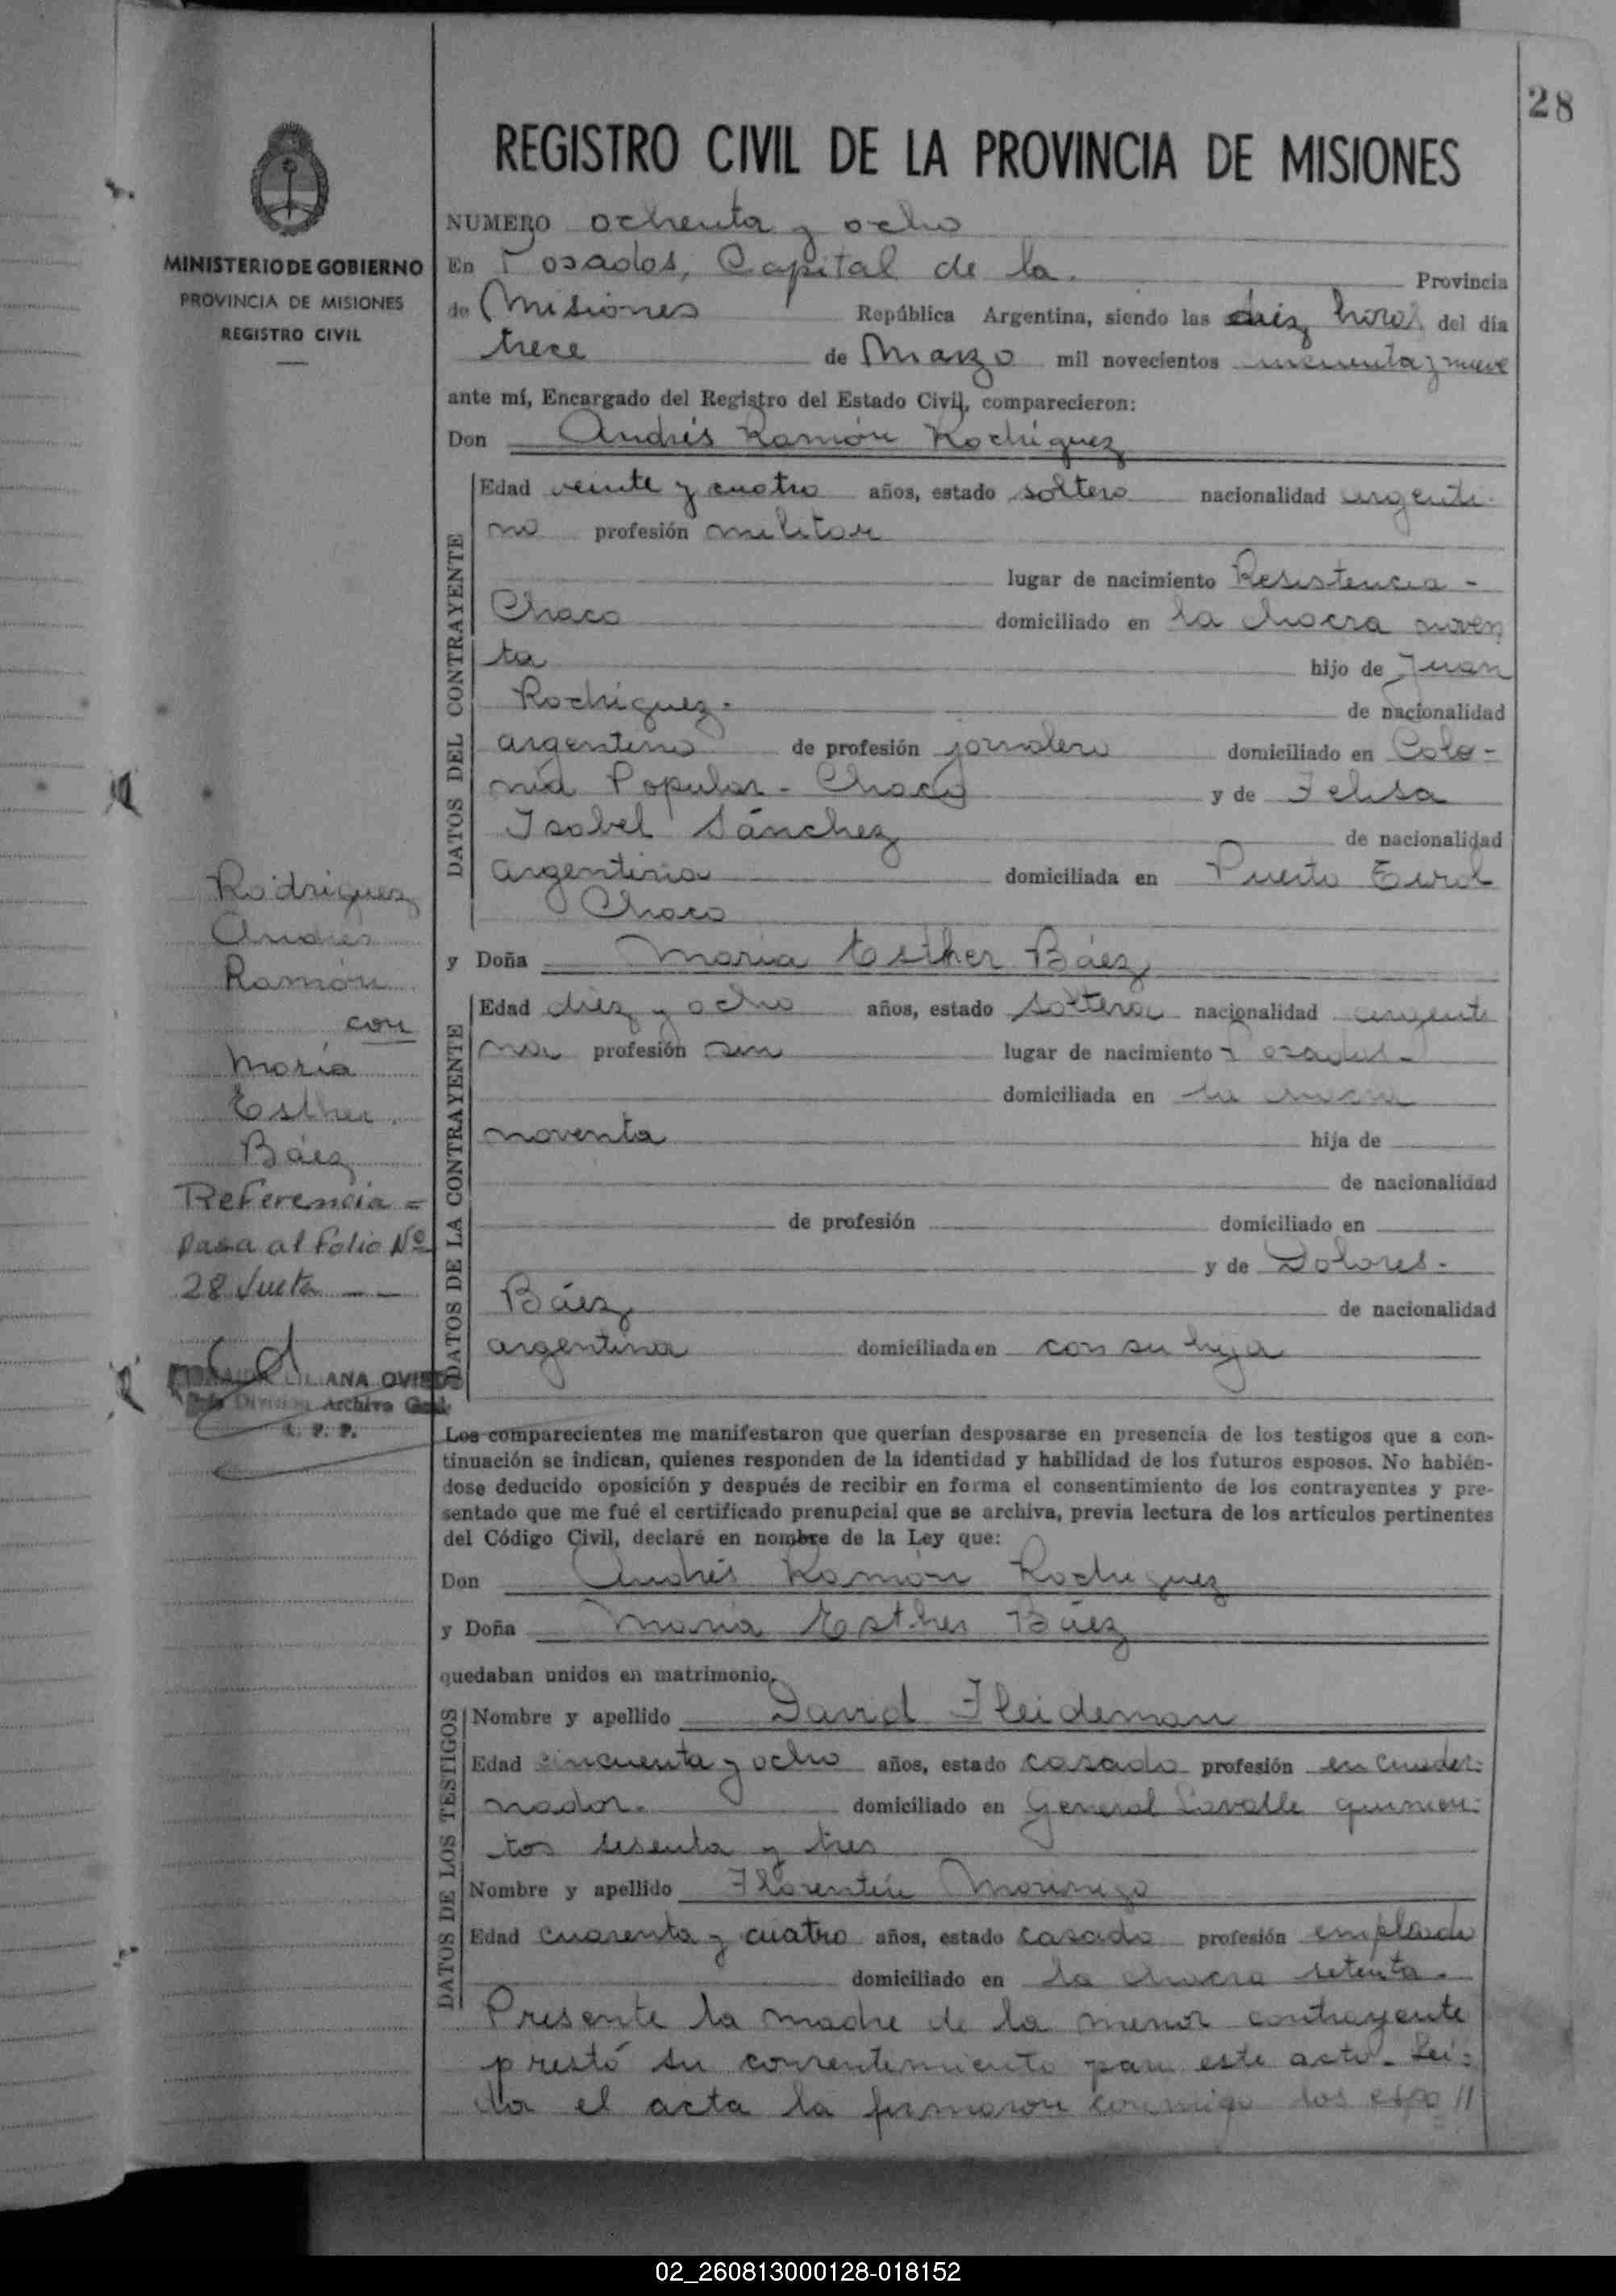 28
REGISTRO CIVIL DE LA PROVINCIA DE MISIONES
MINISTERIO DE GOBIERNO
PROVINCIA DE MISIONES
REGISTRO CIVIL
NUMERO ochenta y ocho
En Posadas, Capital de la. Provincia
de Misiones República Argentina, siendo las diez horas del día
trece de Marzo mil novecientos cincuenta y nueve
ante mí, Encargado del Registro del Estado Civil, comparecieron:
Don Andrés Ramón Rodríguez
DATOS DEL CONTRAYENTE
Edad veinte y cuatro años, estado soltero nacionalidad argenti-
no profesión militar
lugar de nacimiento Resistencia -
Chaco domiciliado en la chacra noven
ta hijo de Juan
Rodríguez. de nacionalidad
argentino de profesión jornalero domiciliado en Colo-
nia Popular - Chaco y de Felisa
Isabel Sánchez de nacionalidad
argentina domiciliada en Puerto Tirol
Chaco
y Doña María Esther Báez
DATOS DE LA CONTRAYENTE
Edad diez y ocho años, estado soltera nacionalidad argenti
na profesión sin lugar de nacimiento Posadas-
domiciliada en la chacra
noventa hija de
de nacionalidad
de profesión domiciliado en
y de Dolores.
Báez de nacionalidad
argentina domiciliada en con su hija
Rodriguez
Andrés
Ramón
con
María
Esther
Báez
Referencia =
pasa al Folio Nº
28 Vuelta — —
LILIANA OVIEDO
División Archivo Gral.
R. P. P.
Los comparecientes me manifestaron que querían desposarse en presencia de los testigos que a con-
tinuación se indican, quienes responden de la identidad y habilidad de los futuros esposos. No habién-
dose deducido oposición y después de recibir en forma el consentimiento de los contrayentes y pre-
sentado que me fué el certificado prenupcial que se archiva, previa lectura de los artículos pertinentes
del Código Civil, declaré en nombre de la Ley que:
Don Andrés Ramón Rodríguez
y Doña María Esther Báez
quedaban unidos en matrimonio.
DATOS DE LOS TESTIGOS
Nombre y apellido David Fleideman
Edad cincuenta y ocho años, estado casado profesión encuader-
nador. domiciliado en General Lavalle quinien-
tos sesenta y tres
Nombre y apellido Florentín Morinigo
Edad cuarenta y cuatro años, estado casado profesión empleado
domiciliado en la chacra setenta.
Presente la madre de la menor contrayente
prestó su consentimiento para este acto. Leí-
da el acta la firmaron conmigo los espo//
02_260813000128-018152